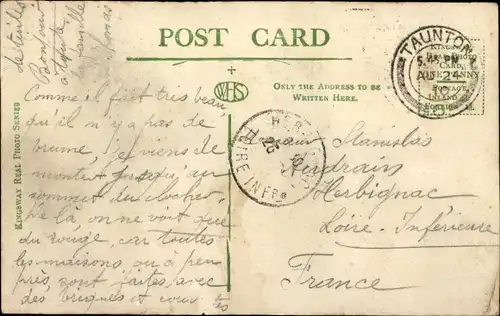 des tuiles
Bonjour
à toute
la famille
POST CARD
ONLY THE ADDRESS TO BE
WRITTEN HERE.
KINGSWAY REAL PHOTO SERIES
WHS
TAUNTON
KINGSWAY
REAL PHOTO
CARD
POSTAGE
INLAND
FOREIGN
LOIRE INFRE
Comme il fait très beau,
qu'il n'y a pas de
brume, je viens de
monter jusqu'au
sommet du clocher.
De là on ne voit que
du rouge, car toutes
les maisons ou à peu
près, sont faites avec
des briques et
Stanislas
Herbignac
Loire-Inférieure
France